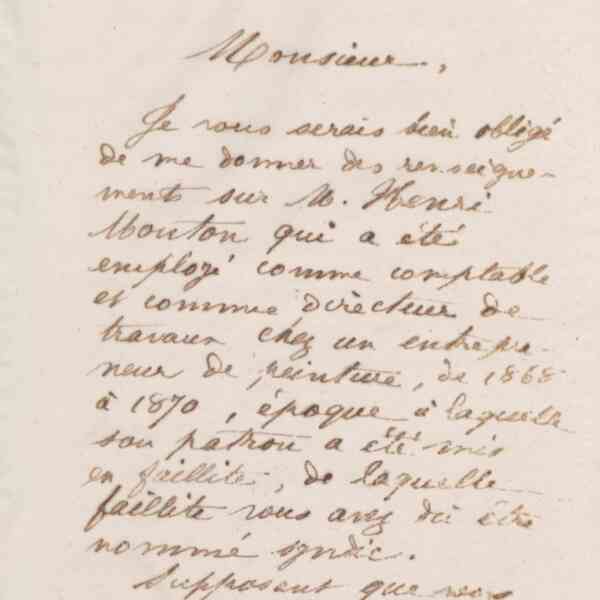 Monsieur,
Je vous serais bien obligé
de me donner des renseigne-
ments sur M. Henri
Mouton qui a été
employé comme comptable
et comme directeur de
travaux chez un entrepre-
neur de peinture, de 1868
à 1870, époque à laquelle
son patron a été mis
en faillite, de laquelle
faillite vous avez dû être
nommé syndic.
Supposant que vous